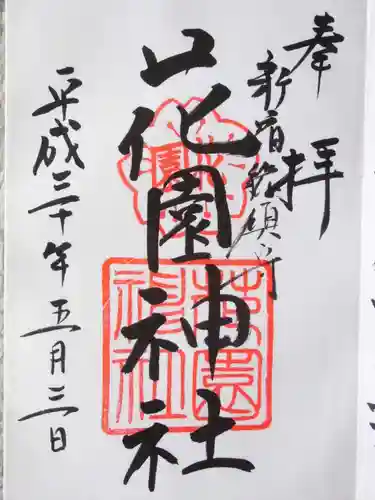 奉拝
新宿総鎮守
花園神社
平成三十年五月三日
花園神社